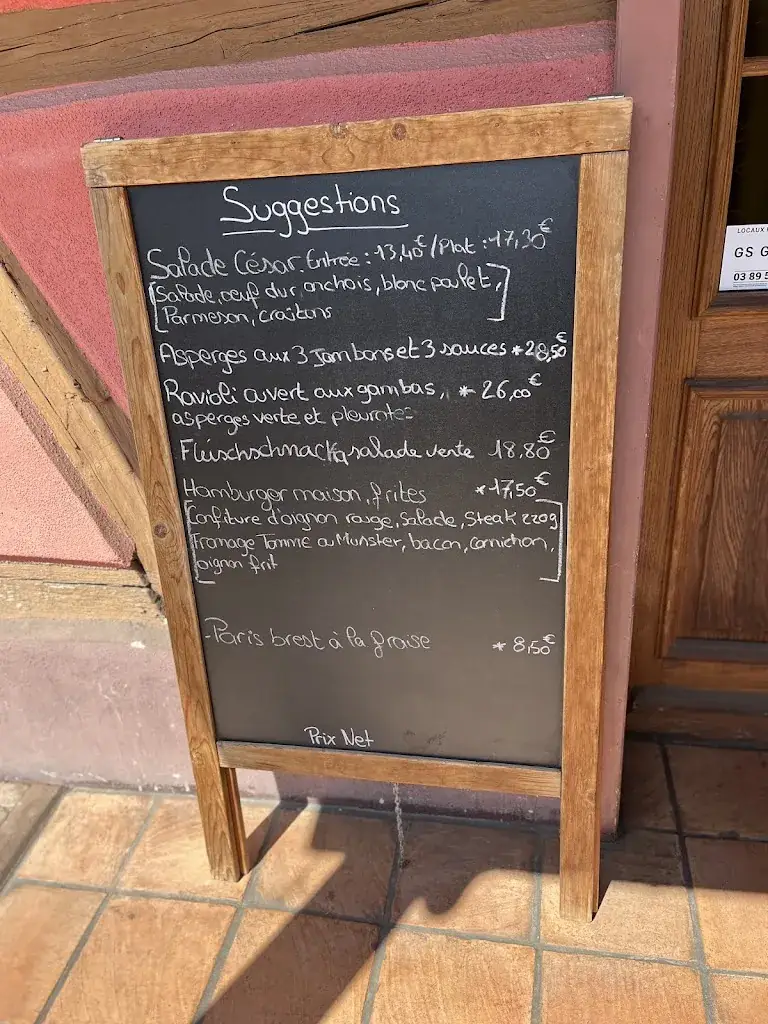 Suggestions
Salade César. Entrée : 13,40€ / Plat : 17,30€
Salade, oeuf dur, anchois, blanc poulet,
Parmesan, croûtons
Asperges aux 3 Jambons et 3 sauces * 28,50€
Ravioli ouvert aux gambas, * 26,00€
asperges verte et pleurotes
Fleischschnacka, salade verte 18,80€
Hamburger maison, frites * 17,50€
Confiture d'oignon rouge, Salade, Steak 220g
Fromage Tomme au Munster, bacon, cornichon,
oignon frit
- Paris brest à la fraise * 8,50€
Prix Net
LOCAUX
GS G
03 89 5